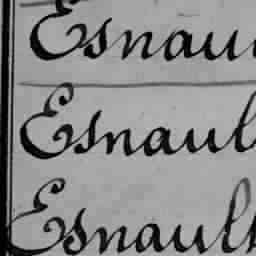 Esnau
Esnaul
Esnault